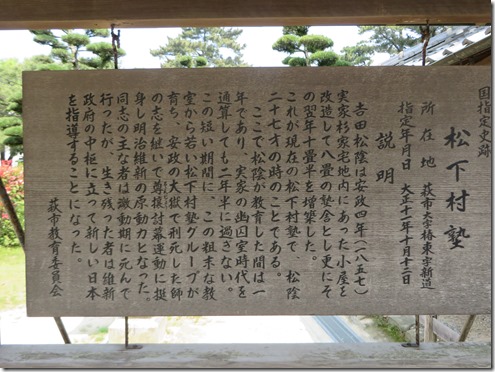 国指定史跡
松下村塾
所在地 萩市大字椿東字新道
指定年月日 大正十一年十月十二日
説明
吉田松陰は安政四年(一八五七)
実家杉家宅地内にあった小屋を
改造して八畳の塾舎とし更にそ
の翌年十畳半を増築した。
これが現在の松下村塾で、松陰
二十七才の時のことである。
ここで松陰が教育した間は一
年であり、実家の幽囚室時代を
通算しても二年半に過さない。
この短い期間に、この粗末な教
室から若い松下村塾グループが
育ち、安政の大獄で刑死した師
の志を継いで尊攘討幕運動に挺
身し明治維新の原動力となった。
同志の主な者は激動期に死んで
行ったが、生き残った者は維新
政府の中枢に立って新しい日本
を指導することになった。
萩市教育委員会